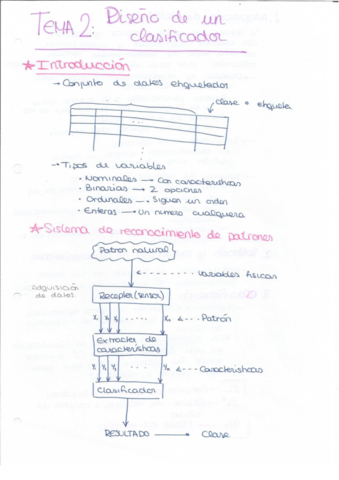 TEMA 2: Diseño de un
clasificador
* Introducción
→ Conjunto de datos etiquetados
clase o etiqueta
→ Tipos de variables
• Nominales → Con características
• Binarias → 2 opciones
• Ordinales → Siguen un orden
• Enteras → Un numero cualquiera
* Sistema de reconocimiento de patrones
Patron natural
variables físicas
adquisición
de datos
Receptor (sensor)
X₁ X₂ X₃ ..... Xn ←--- Patrón
Extractor de
características
Y₁ Y₂ Y₃ .... Ym ←--- Características
Clasificador
RESULTADO → Clase